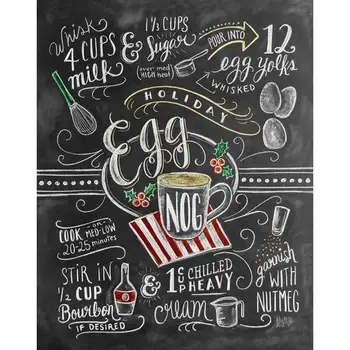 Whisk
4 CUPS
milk
&
1 1/2 CUPS
Sugar
(over med-
HIGH heat)
POUR INTO
12
egg yolks
WHISKED
HOLIDAY
Egg
NOG
COOK on
MED-LOW
20-25 minutes
STIR IN
1/2 CUP
Bourbon
IF DESIRED
&
CHILLED
HEAVY
cream
garnish
WITH
NUTMEG